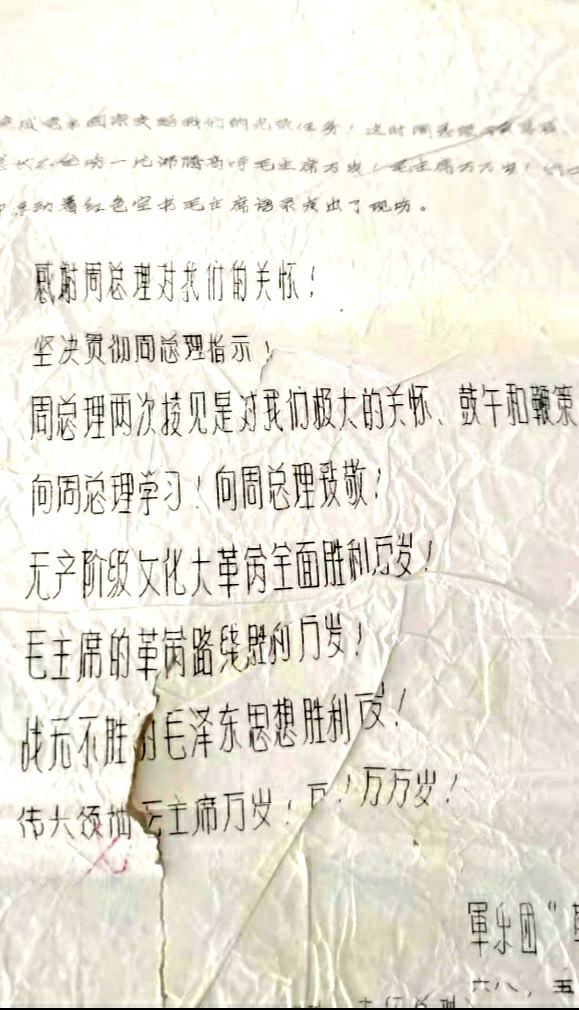 完成党和国家交给我们的光荣任务！这时周总理
全场一片沸腾高呼毛主席万岁！毛主席万万岁！
动着红色宝书毛主席语录走出了现场。
感谢周总理对我们的关怀！
坚决贯彻周总理指示！
周总理两次接见是对我们极大的关怀、鼓午和鞭策
向周总理学习！向周总理致敬！
无产阶级文化大革命全面胜利万岁！
毛主席的革命路线胜利万岁！
战无不胜的毛泽东思想胜利万岁！
伟大领袖毛主席万岁！万！万万岁！
軍乐团“
六八，五